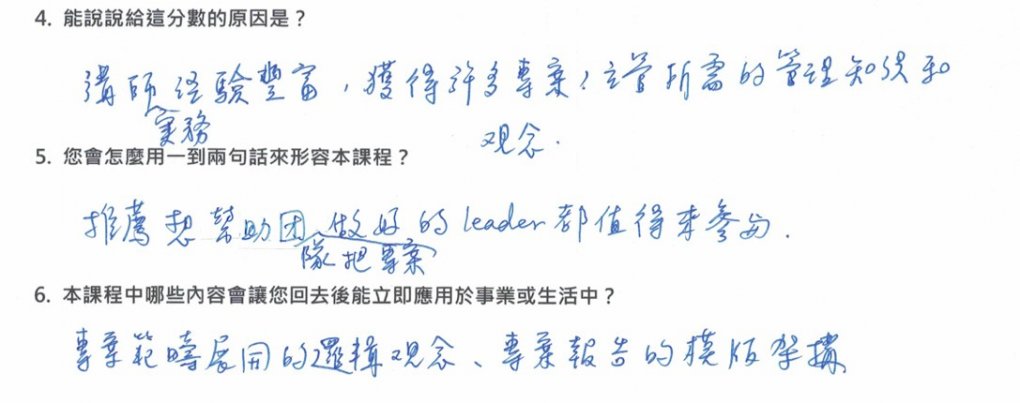 4. 能說說給這分數的原因是？
講師實務经驗豐富，獲得許多專案，主管所需的管理知识和
观念.
5. 您會怎麼用一到兩句話來形容本課程？
推薦想幫助团隊把專案做好的leader都值得来參与.
6. 本課程中哪些內容會讓您回去後能立即應用於事業或生活中？
專案範疇展開的邏輯观念、專案報告的模版架構